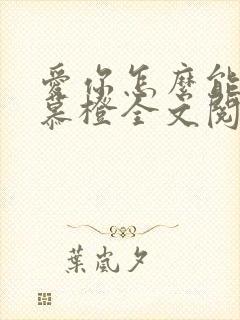 愛你怎麼能
慕橙全文閱
葉嵐夕